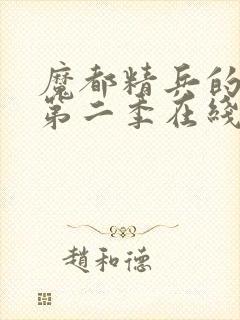 魔都精兵的
第二季在綫
趙和德